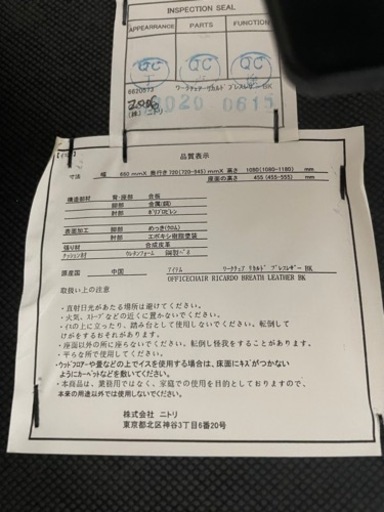 INSPECTION SEAL
APPEARANCE PARTS FUNCTION
QC QC QC
6620573 ワークチェア・リカルド ブレスレザー BK
2020.0615
(株)ニトリ
品質表示
寸法 幅 660 mmX 奥行き 720(720-945) mmX 高さ 1090(1090-1190) mm
座面の高さ 455 (455-555) mm
構造部材 背・座部 合板
脚部 金属(鋼)
肘部 ポリプロピレン
表面加工 脚部 めっき(クロム)
肘部 エポキシ樹脂塗装
張り材 合成皮革
クッション材 ウレタンフォーム 鋼製バネ
原産国 中国 アイテム ワークチェア リカルド ブレスレザー BK
OFFICECHAIR RICARDO BREATH LEATHER BK
取扱い上の注意
・直射日光があたる場所は避けてください。
・火気、ストーブなどの近くに置かないでください。
・イスの上に立ったり、踏み台として使用しないでください。転倒して
けがをするおそれがあります。
・座面以外の所に座らないでください。転倒し怪我をすることがあります。
・平らな所で使用してください。
・ウッドフロアーや畳などの上でイスを使用する場合は、床面にキズがつかない
ようにカーペットなどを敷いてください。
・本商品は、業務用ではなく、家庭での使用を目的としておりますので、
本来の用途以外では使用しないでください。
株式会社 ニトリ
東京都北区神谷3丁目6番20号